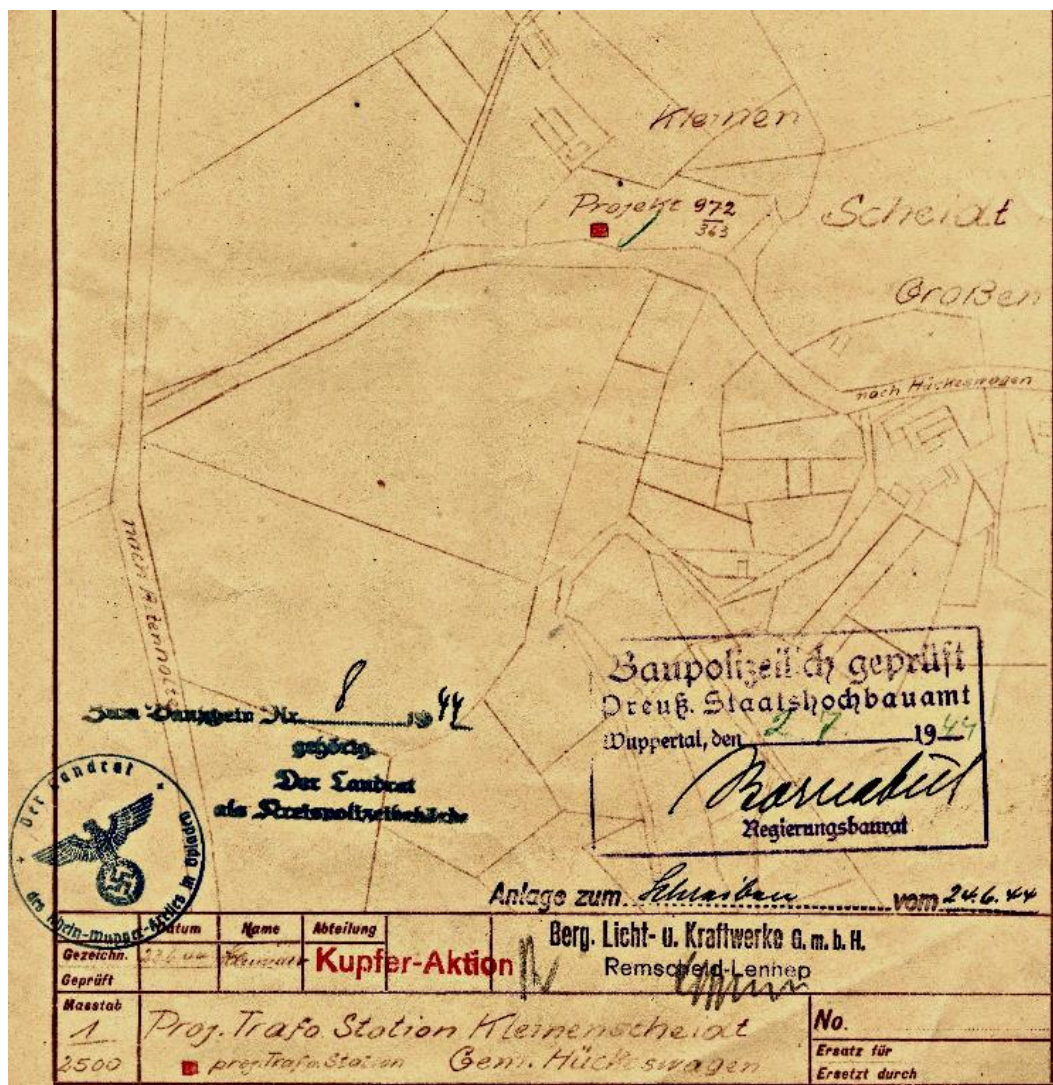 Kleinen
Projekt 972
363
Scheidt
Großen
nach Hückeswagen
nach
Zum Bauschein Nr. 8 1944
gehörig.
Der Landrat
als Kreispolizeibehörde
Der Landrat
des Rhein-Wupper-Kreises in Opladen
Baupolizeilich geprüft
Preuß. Staatshochbauamt
Wuppertal, den 2. 7. 1944
Regierungsbaurat
Anlage zum Schreiben vom 24.6.44
Datum Name Abteilung
Gezeichn. 23.6.44
Geprüft
Kupfer-Aktion
Berg. Licht- u. Kraftwerke G.m.b.H.
Remscheid-Lennep
Masstab
1
2500
Proj. Trafo Station Kleinenscheidt
proj. Trafo. Station Gem. Hückeswagen
No.
Ersatz für
Ersetzt durch